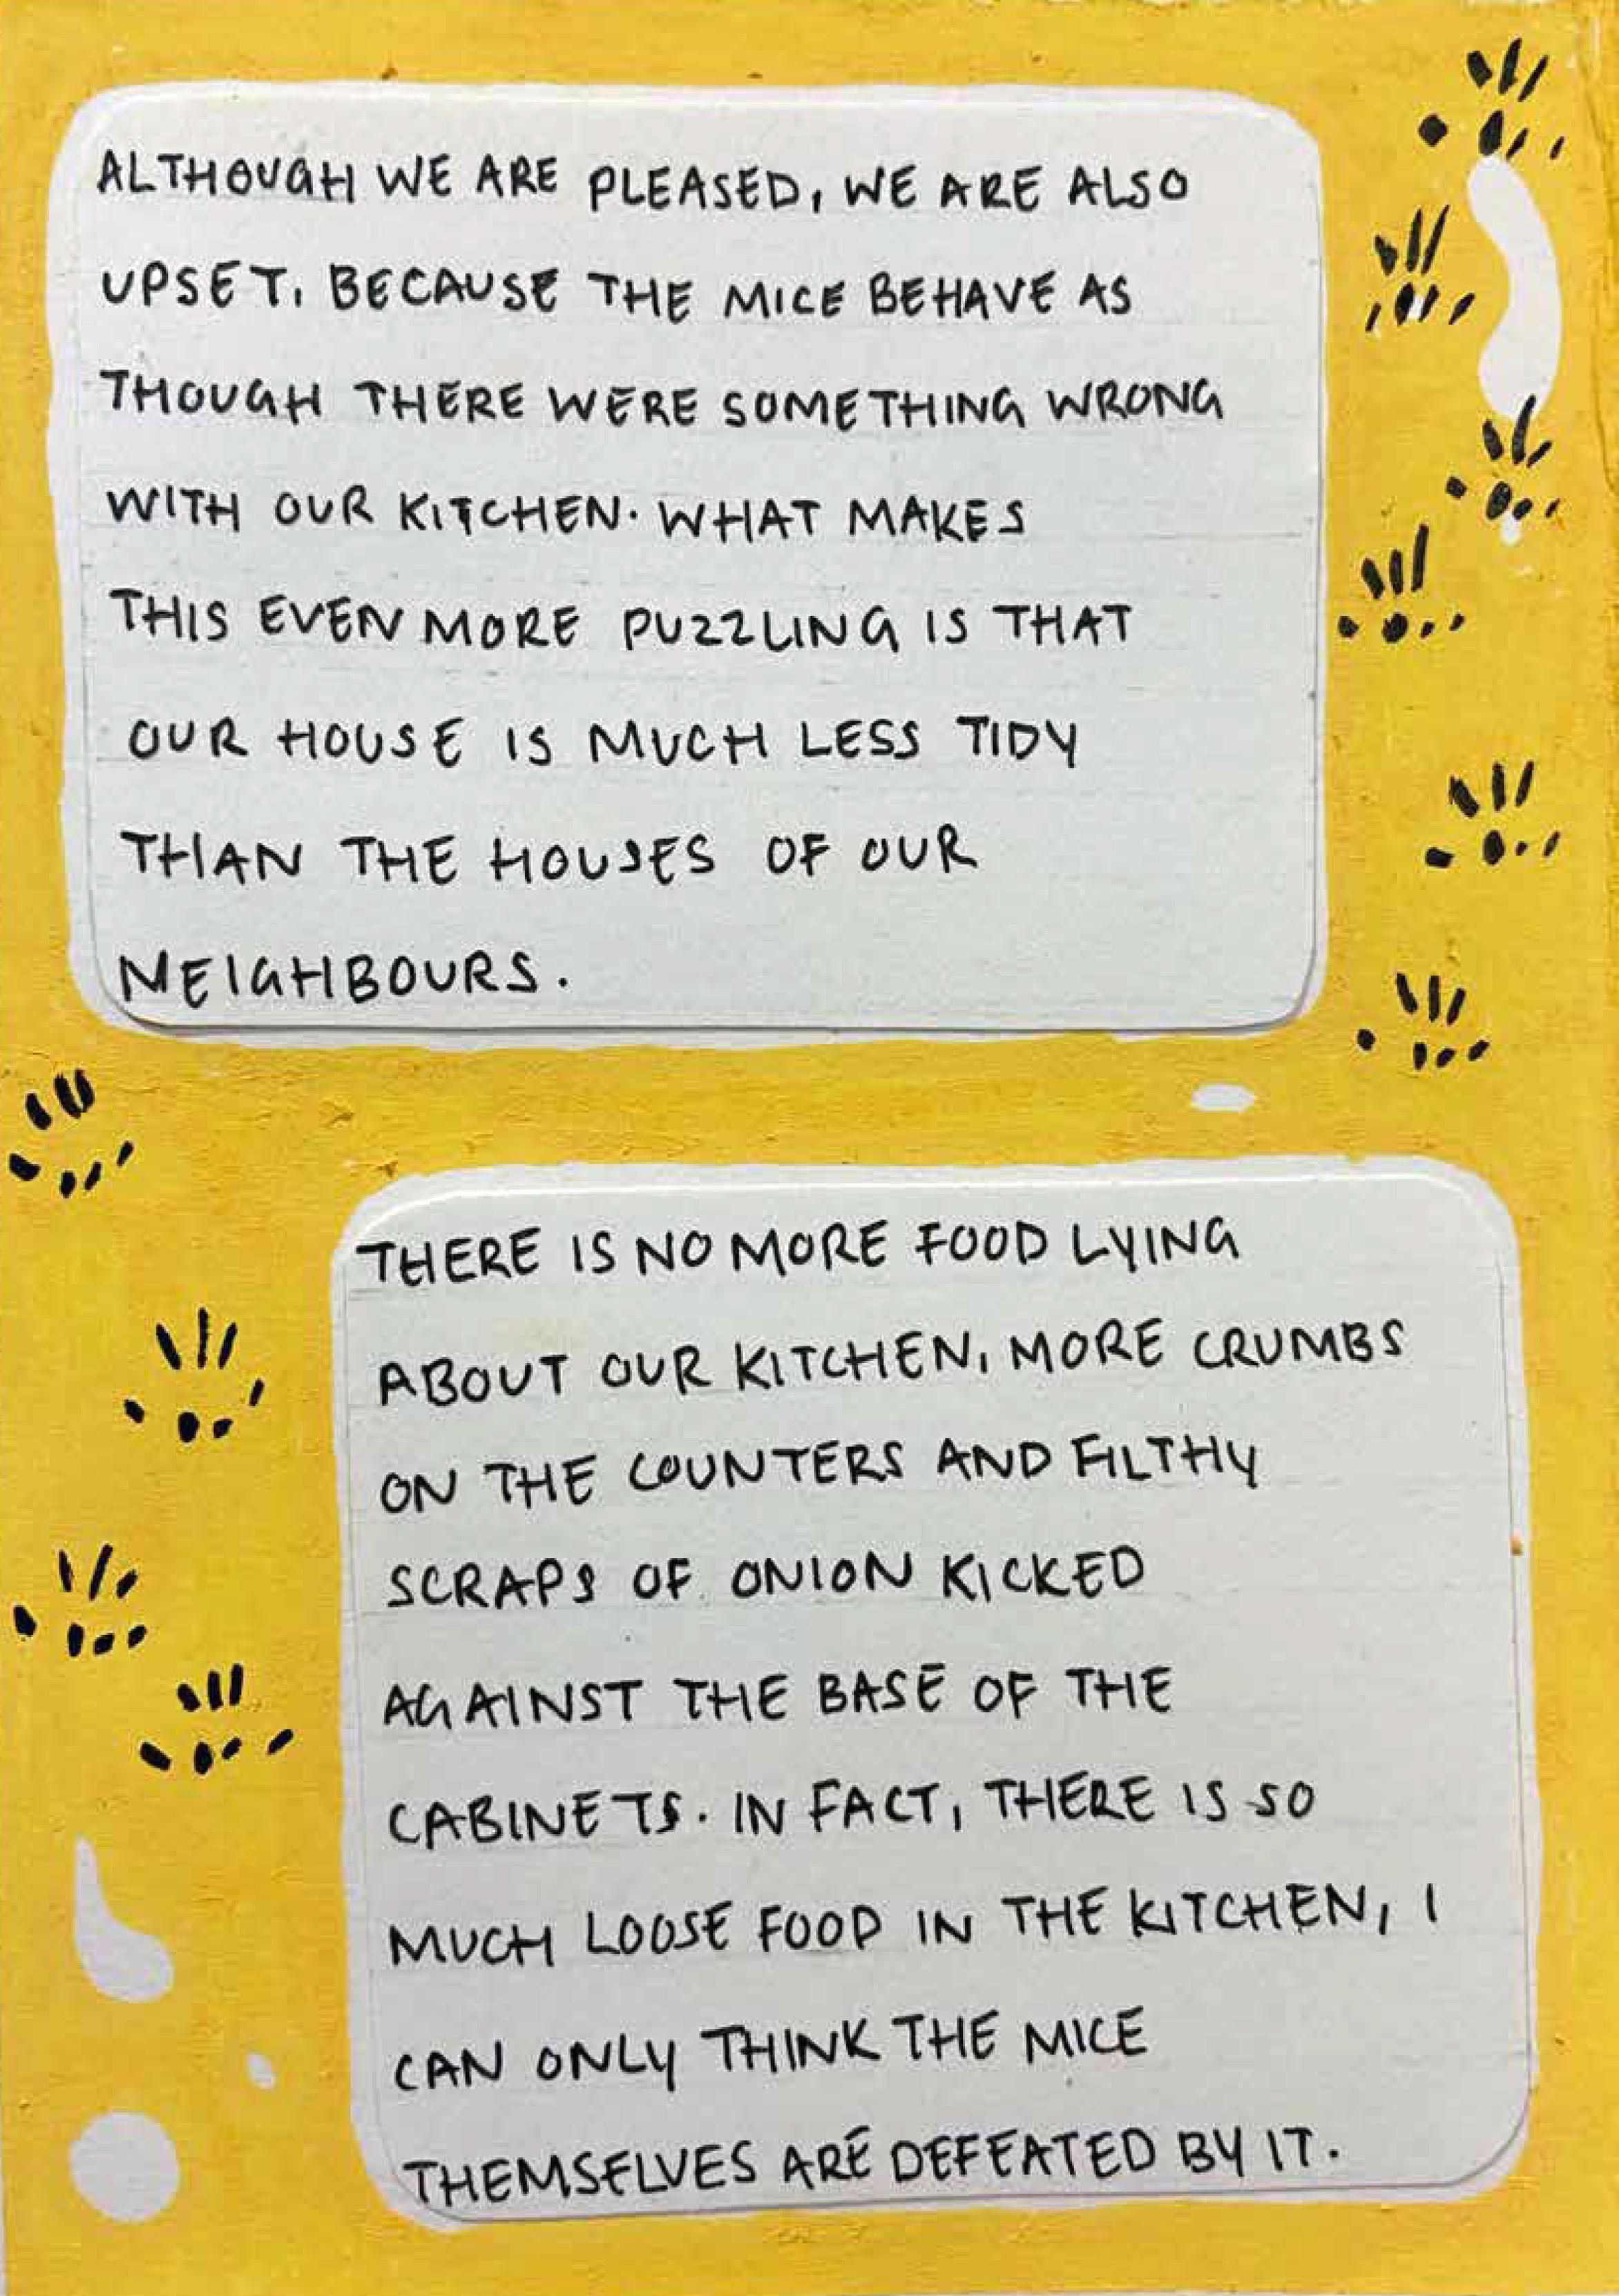 ALTHOUGH WE ARE PLEASED, WE ARE ALSO
UPSET, BECAUSE THE MICE BEHAVE AS
THOUGH THERE WERE SOMETHING WRONG
WITH OUR KITCHEN. WHAT MAKES
THIS EVEN MORE PUZZLING IS THAT
OUR HOUSE IS MUCH LESS TIDY
THAN THE HOUSES OF OUR
NEIGHBOURS.
THERE IS NO MORE FOOD LYING
ABOUT OUR KITCHEN, MORE CRUMBS
ON THE COUNTERS AND FILTHY
SCRAPS OF ONION KICKED
AGAINST THE BASE OF THE
CABINETS. IN FACT, THERE IS SO
MUCH LOOSE FOOD IN THE KITCHEN, I
CAN ONLY THINK THE MICE
THEMSELVES ARE DEFEATED BY IT.